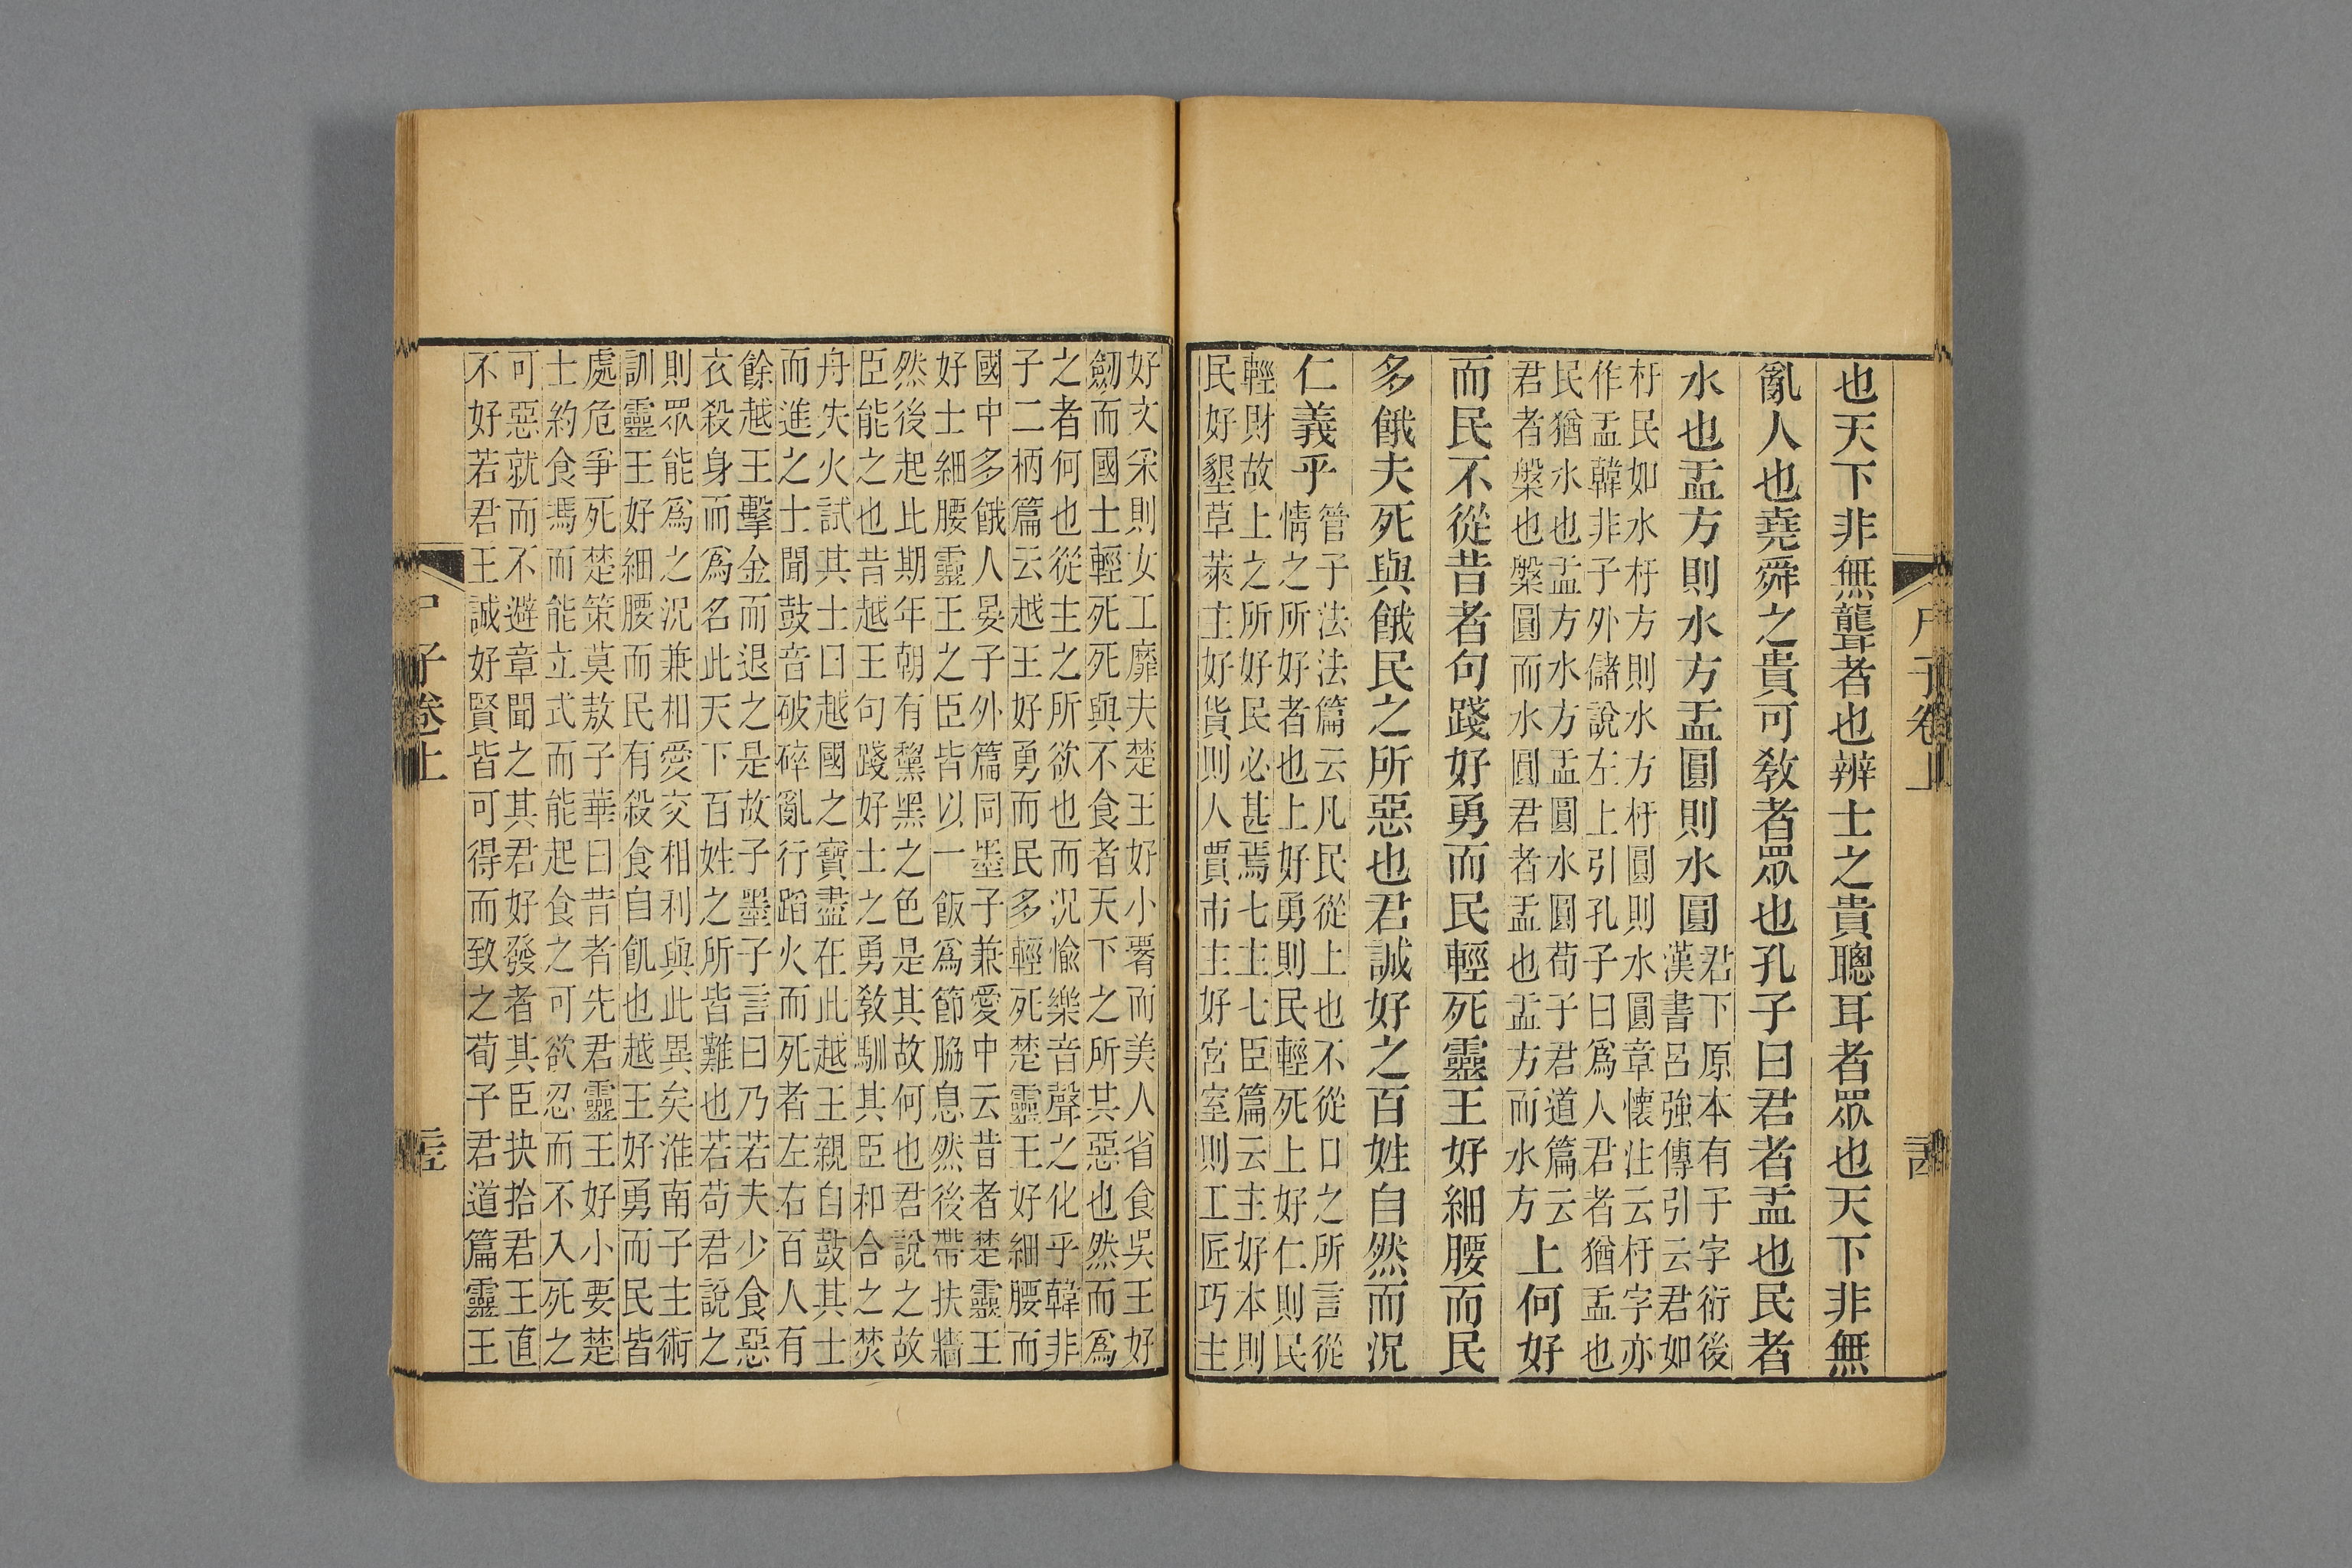 也天下非無聾者也辨士之貴聰耳者眾也天下非無
亂人也堯舜之貴可敎者眾也孔子曰君者盂也民者
水也盂方則水方盂圓則水圓
君下原本有子字衍後
漢書呂強傳引云君如
杅民如水杅方則水方杅圓則水圓章懷注云杅字亦
作盂韓非子外儲說左上引孔子曰爲人君者猶盂也
民猶水也盂方水方盂圓水圓荀子君道篇云
君者槃也槃圓而水圓君者盂也盂方而水方
上何好
而民不從昔者句踐好勇而民輕死靈王好細腰而民
多餓夫死與餓民之所惡也君誠好之百姓自然而況
仁義乎
管子法法篇云凡民從上也不從口之所言從
情之所好者也上好勇則民輕死上好仁則民
輕財故上之所好民必甚焉七主七臣篇云主好本則
民好墾草萊主好貨則人賈市主好宮室則工匠巧主
好文采則女工靡夫楚王好小署而美人省食吳王好
劒而國士輕死死與不食者天下之所其惡也然而爲
之者何也從主之所欲也而況愉樂音聲之化乎韓非
子二柄篇云越王好勇而民多輕死楚靈王好細腰而
國中多餓人晏子外篇同墨子兼愛中云昔者楚靈王
好士細腰靈王之臣皆以一飯爲節脇息然後帶扶牆
然後起此期年朝有黧黑之色是其故何也君說之故
臣能之也昔越王句踐好士之勇敎馴其臣和合之焚
舟失火試其士曰越國之寶盡在此越王親自鼓其士
而進之士聞鼓音破碎亂行蹈火而死者左右百人有
餘越王擊金而退之是故子墨子言曰乃若夫少食惡
衣殺身而爲名此天下百姓之所皆難也若苟君說之
則眾能爲之況兼相愛交相利與此異矣淮南子主術
訓靈王好細腰而民有殺食自飢也越王好勇而民皆
處危爭死楚策莫敖子華曰昔者先君靈王好小要楚
士約食馮而能立式而能起食之可欲忍而不入死之
可惡就而不避章聞之其君好發者其臣抉拾君王直
不好若君王誠好賢皆可得而致之荀子君道篇靈王
尸子卷上